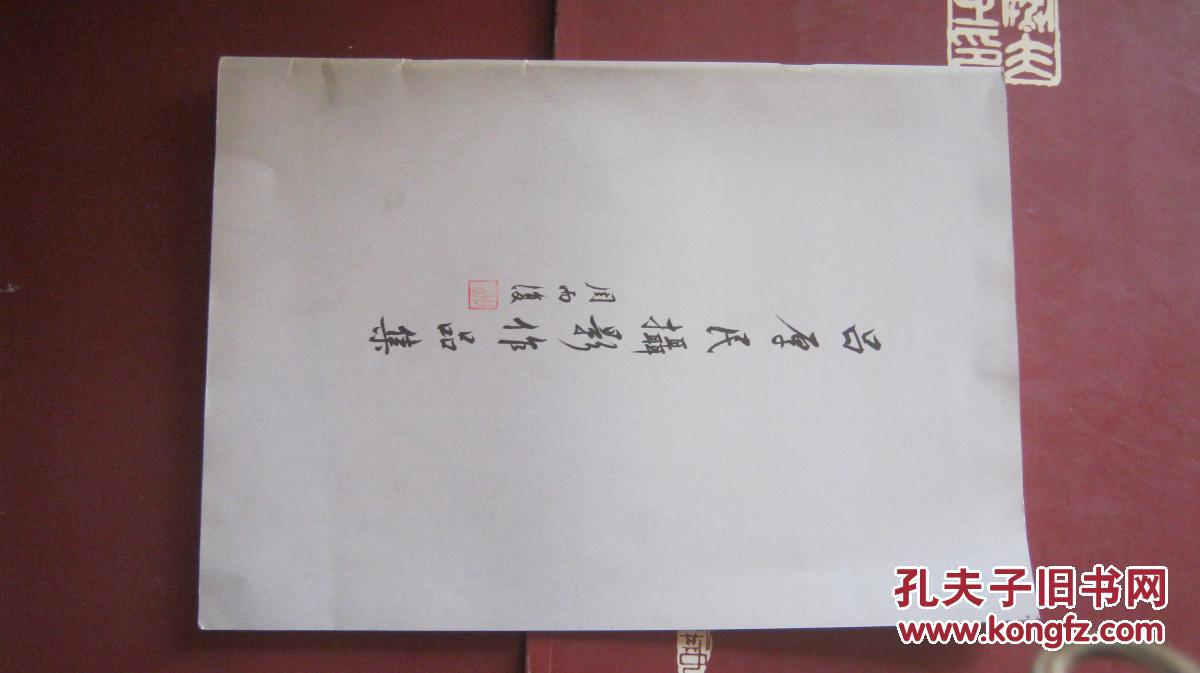 吕厚民攝影作品集
周而復
孔夫子旧书网
www.kongfz.com